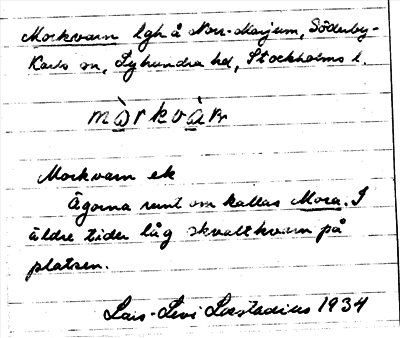 Morkvarn lgh å Norr-Marjum, Söderby-
Karls sn, Lyhundra hd, Stockholms l.
mà̱rkvà̱ṇ
Morkvarn ek
Ägorna runt om kallas Mora. I
äldre tider låg skvaltkvarn på
platsen.
Lars-Levi Læstadius 1934